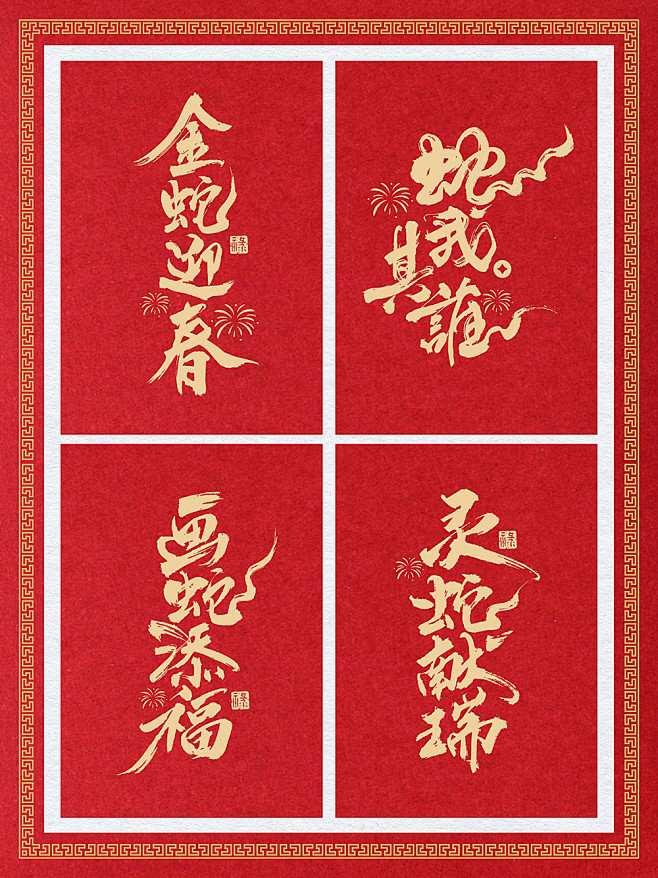 金蛇迎春
蛇我其誰
画蛇添福
灵蛇献瑞